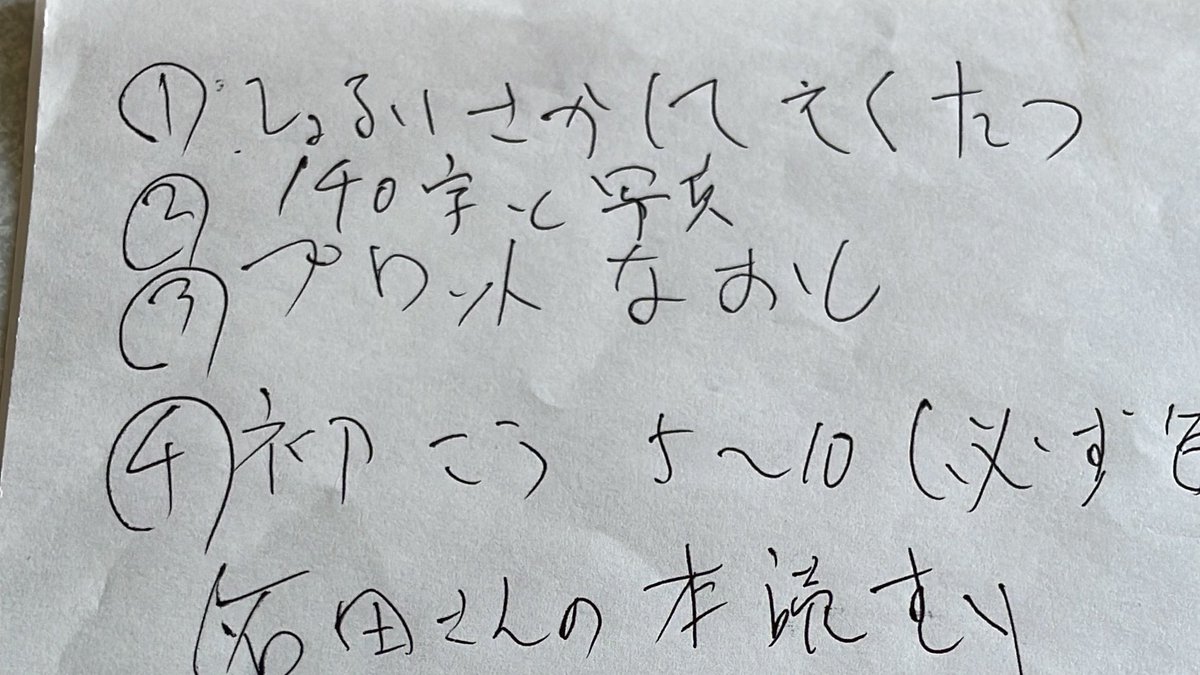 ① しょるいさがして そくたつ
② 140字と写真
③ プロットなおし
④ 初こう 5〜10 (必ず
岩田さんの本読む)